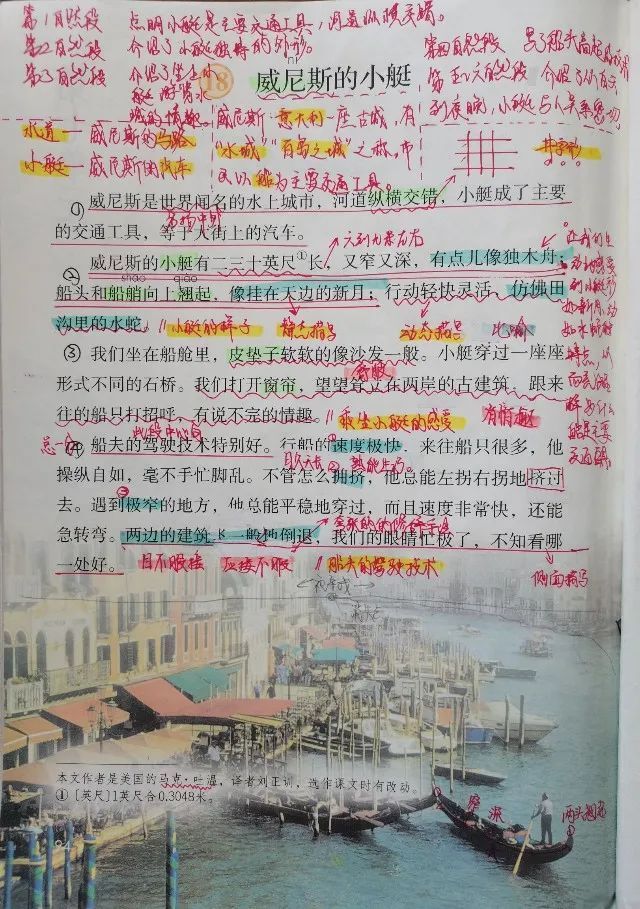 第1自然段 点明小艇是主要交通工具，河道纵横交错。
第2自然段 介绍了小艇独特的外形。
第3自然段 介绍了坐上小
艇
的情趣。
第四自然段
第五六自然段 介绍了
到夜晚，小艇与人关系密切
18 威尼斯的小艇
水道—威尼斯的马路
小艇—威尼斯的汽车
威尼斯：意大利一座古城，有
"水城""百岛之城"之称，市
民以船为主要交通工具。
井字形
① 威尼斯是世界闻名的水上城市，河道纵横交错，小艇成了主要
的交通工具，等于大街上的汽车。
六到九米左右
② 威尼斯的小艇有二三十英尺①长，又窄又深，有点儿像独木舟；
shāo qiào
船头和船艄向上翘起，像挂在天边的新月；行动轻快灵活，仿佛田
沟里的水蛇。
小艇的样子 静态描写 动态描写 比喻
③ 我们坐在船舱里，皮垫子软软的像沙发一般。小艇穿过一座座
形式不同的石桥。我们打开窗帘，望望耸立在两岸的古建筑，跟来
往的船只打招呼，有说不完的情趣。
乘坐小艇的感受 有情趣
总
④ 船夫的驾驶技术特别好。行船的速度极快，来往船只很多，他
操纵自如，毫不手忙脚乱。不管怎么拥挤，他总能左拐右拐地挤过
去。遇到极窄的地方，他总能平稳地穿过，而且速度非常快，还能
急转弯。两边的建筑飞一般地倒退，我们的眼睛忙极了，不知看哪
一处好。
目不暇接 应接不暇 船夫的驾驶技术
侧面描写
本文作者是美国的马克·吐温，译者刘正训，选作课文时有改动。
① 〔英尺〕1英尺合0.3048米。
两头翘起